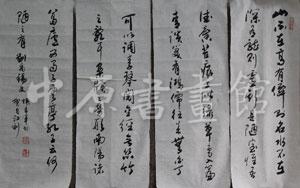 山不在高有仙則名水不在
深有龍則靈斯是陋室惟吾
德馨苔痕上階綠草色入簾
青談笑有鴻儒往來無白丁
可以調素琴閱金經無絲竹
之亂耳無案牘之勞形南陽諸
葛廬西蜀子雲亭孔子云何
陋之有 劉禹錫文
中石書畫館